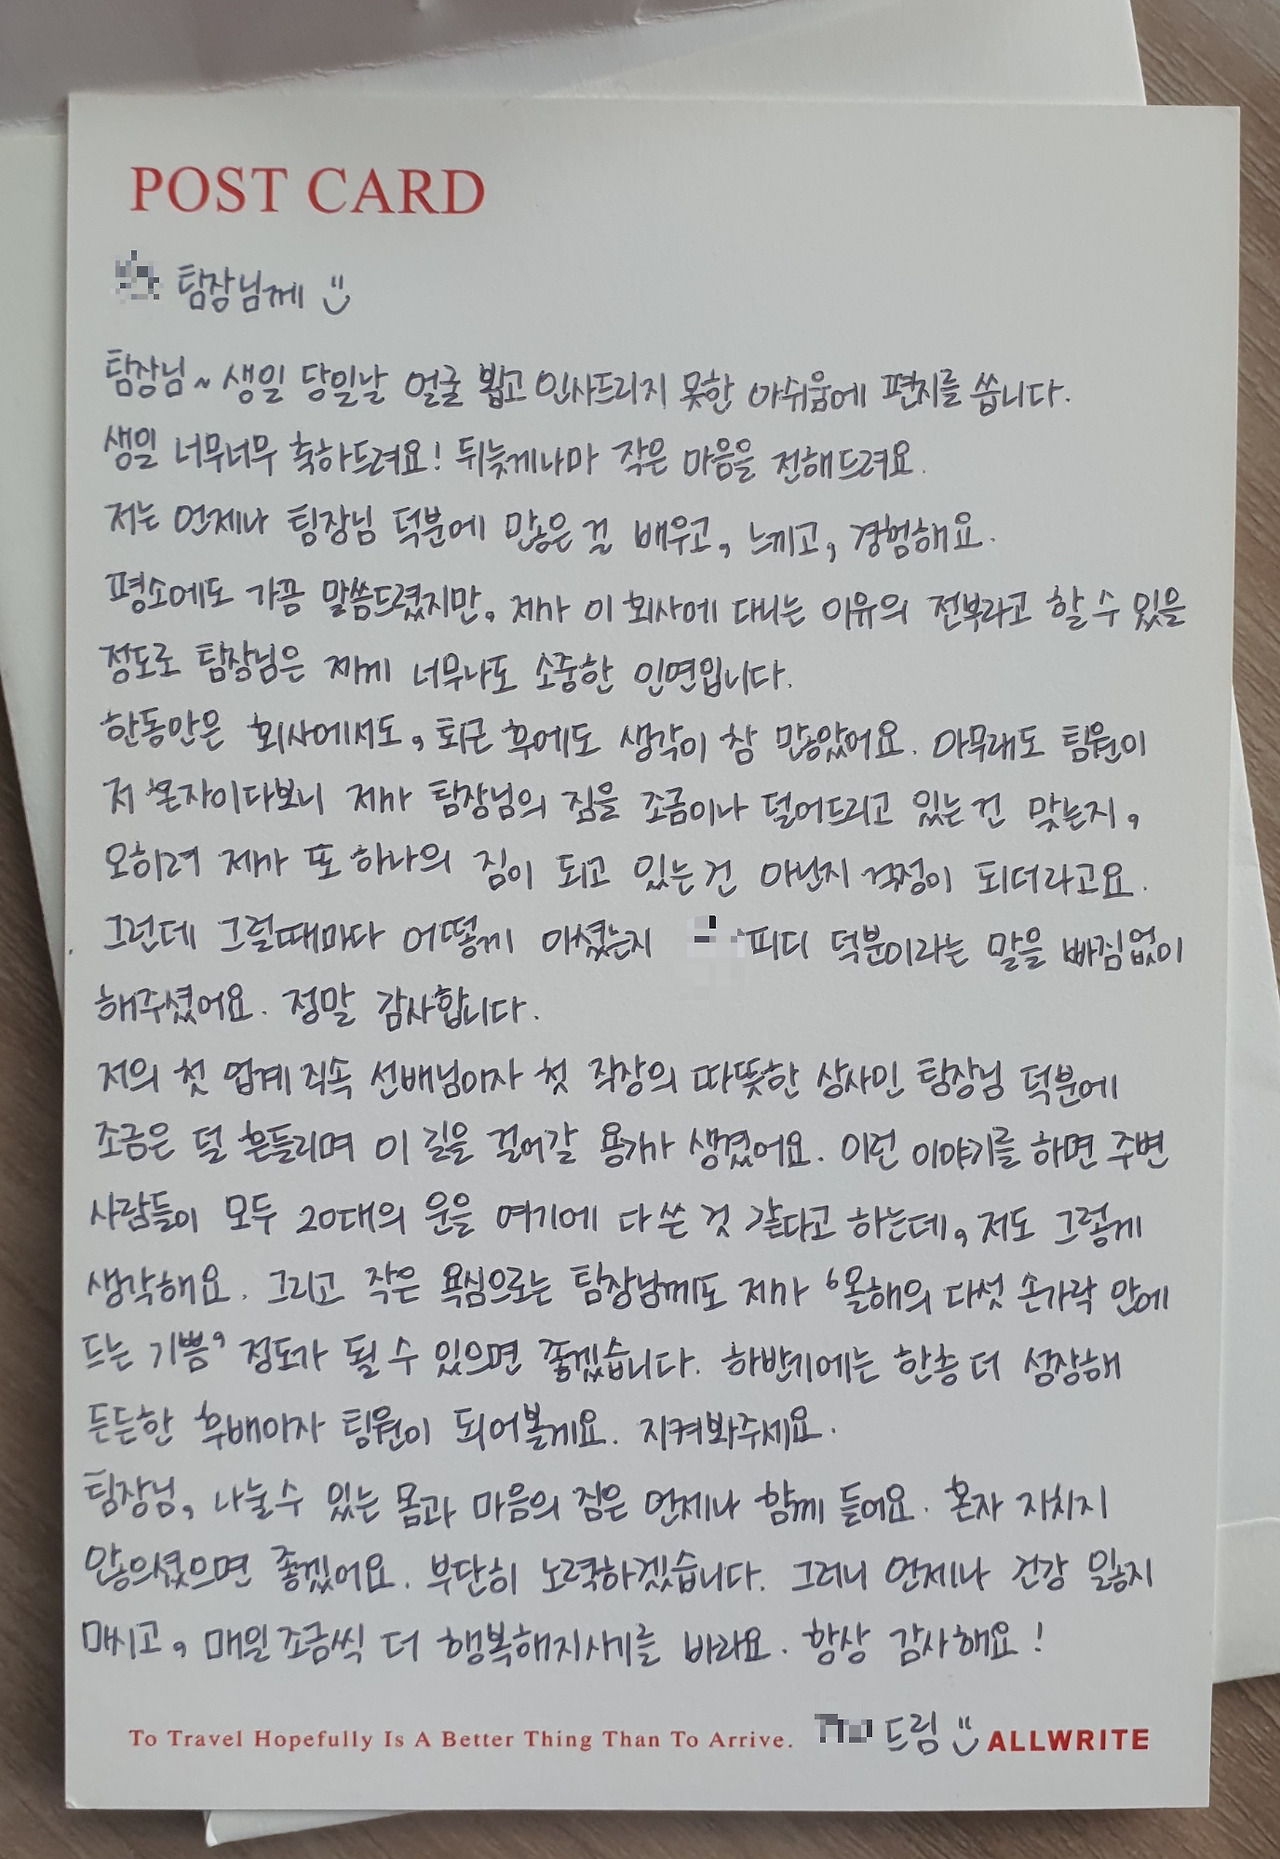 POST CARD
팀장님께
팀장님~ 생일 당일날 얼굴 뵙고 인사드리지 못한 아쉬움에 편지를 씁니다.
생일 너무너무 축하드려요! 뒤늦게나마 작은 마음을 전해드려요.
저는 언제나 팀장님 덕분에 많은 걸 배우고, 느끼고, 경험해요.
평소에도 가끔 말씀드렸지만, 제가 이 회사에 다니는 이유의 전부라고 할 수 있을
정도로 팀장님은 제게 너무나도 소중한 인연입니다.
한동안은 회사에서도, 퇴근 후에도 생각이 참 많았어요. 아무래도 팀원이
저 혼자이다보니 제가 팀장님의 짐을 조금이나 덜어드리고 있는 건 맞는지,
오히려 제가 또 하나의 짐이 되고 있는 건 아닌지 걱정이 되더라고요.
그런데 그럴때마다 어떻게 아셨는지 피디 덕분이라는 말을 빠짐없이
해주셨어요. 정말 감사합니다.
저의 첫 업계 직속 선배님이자 첫 직장의 따뜻한 상사인 팀장님 덕분에
조금은 덜 흔들리며 이 길을 걸어갈 용기가 생겼어요. 이런 이야기를 하면 주변
사람들이 모두 20대의 운을 여기에 다 쓴 것 같다고 하는데, 저도 그렇게
생각해요. 그리고 작은 욕심으로는 팀장님께도 제가 '올해의 다섯 손가락 안에
드는 기쁨' 정도가 될 수 있으면 좋겠습니다. 하반기에는 한층 더 성장해
든든한 후배이자 팀원이 되어볼게요. 지켜봐주세요.
팀장님, 나눌 수 있는 몸과 마음의 짐은 언제나 함께 들어요. 혼자 지치지
않으셨으면 좋겠어요. 부단히 노력하겠습니다. 그러니 언제나 건강 잃지
마시고, 매일 조금씩 더 행복해지시기를 바라요. 항상 감사해요!
드림
To Travel Hopefully Is A Better Thing Than To Arrive. ALLWRITE